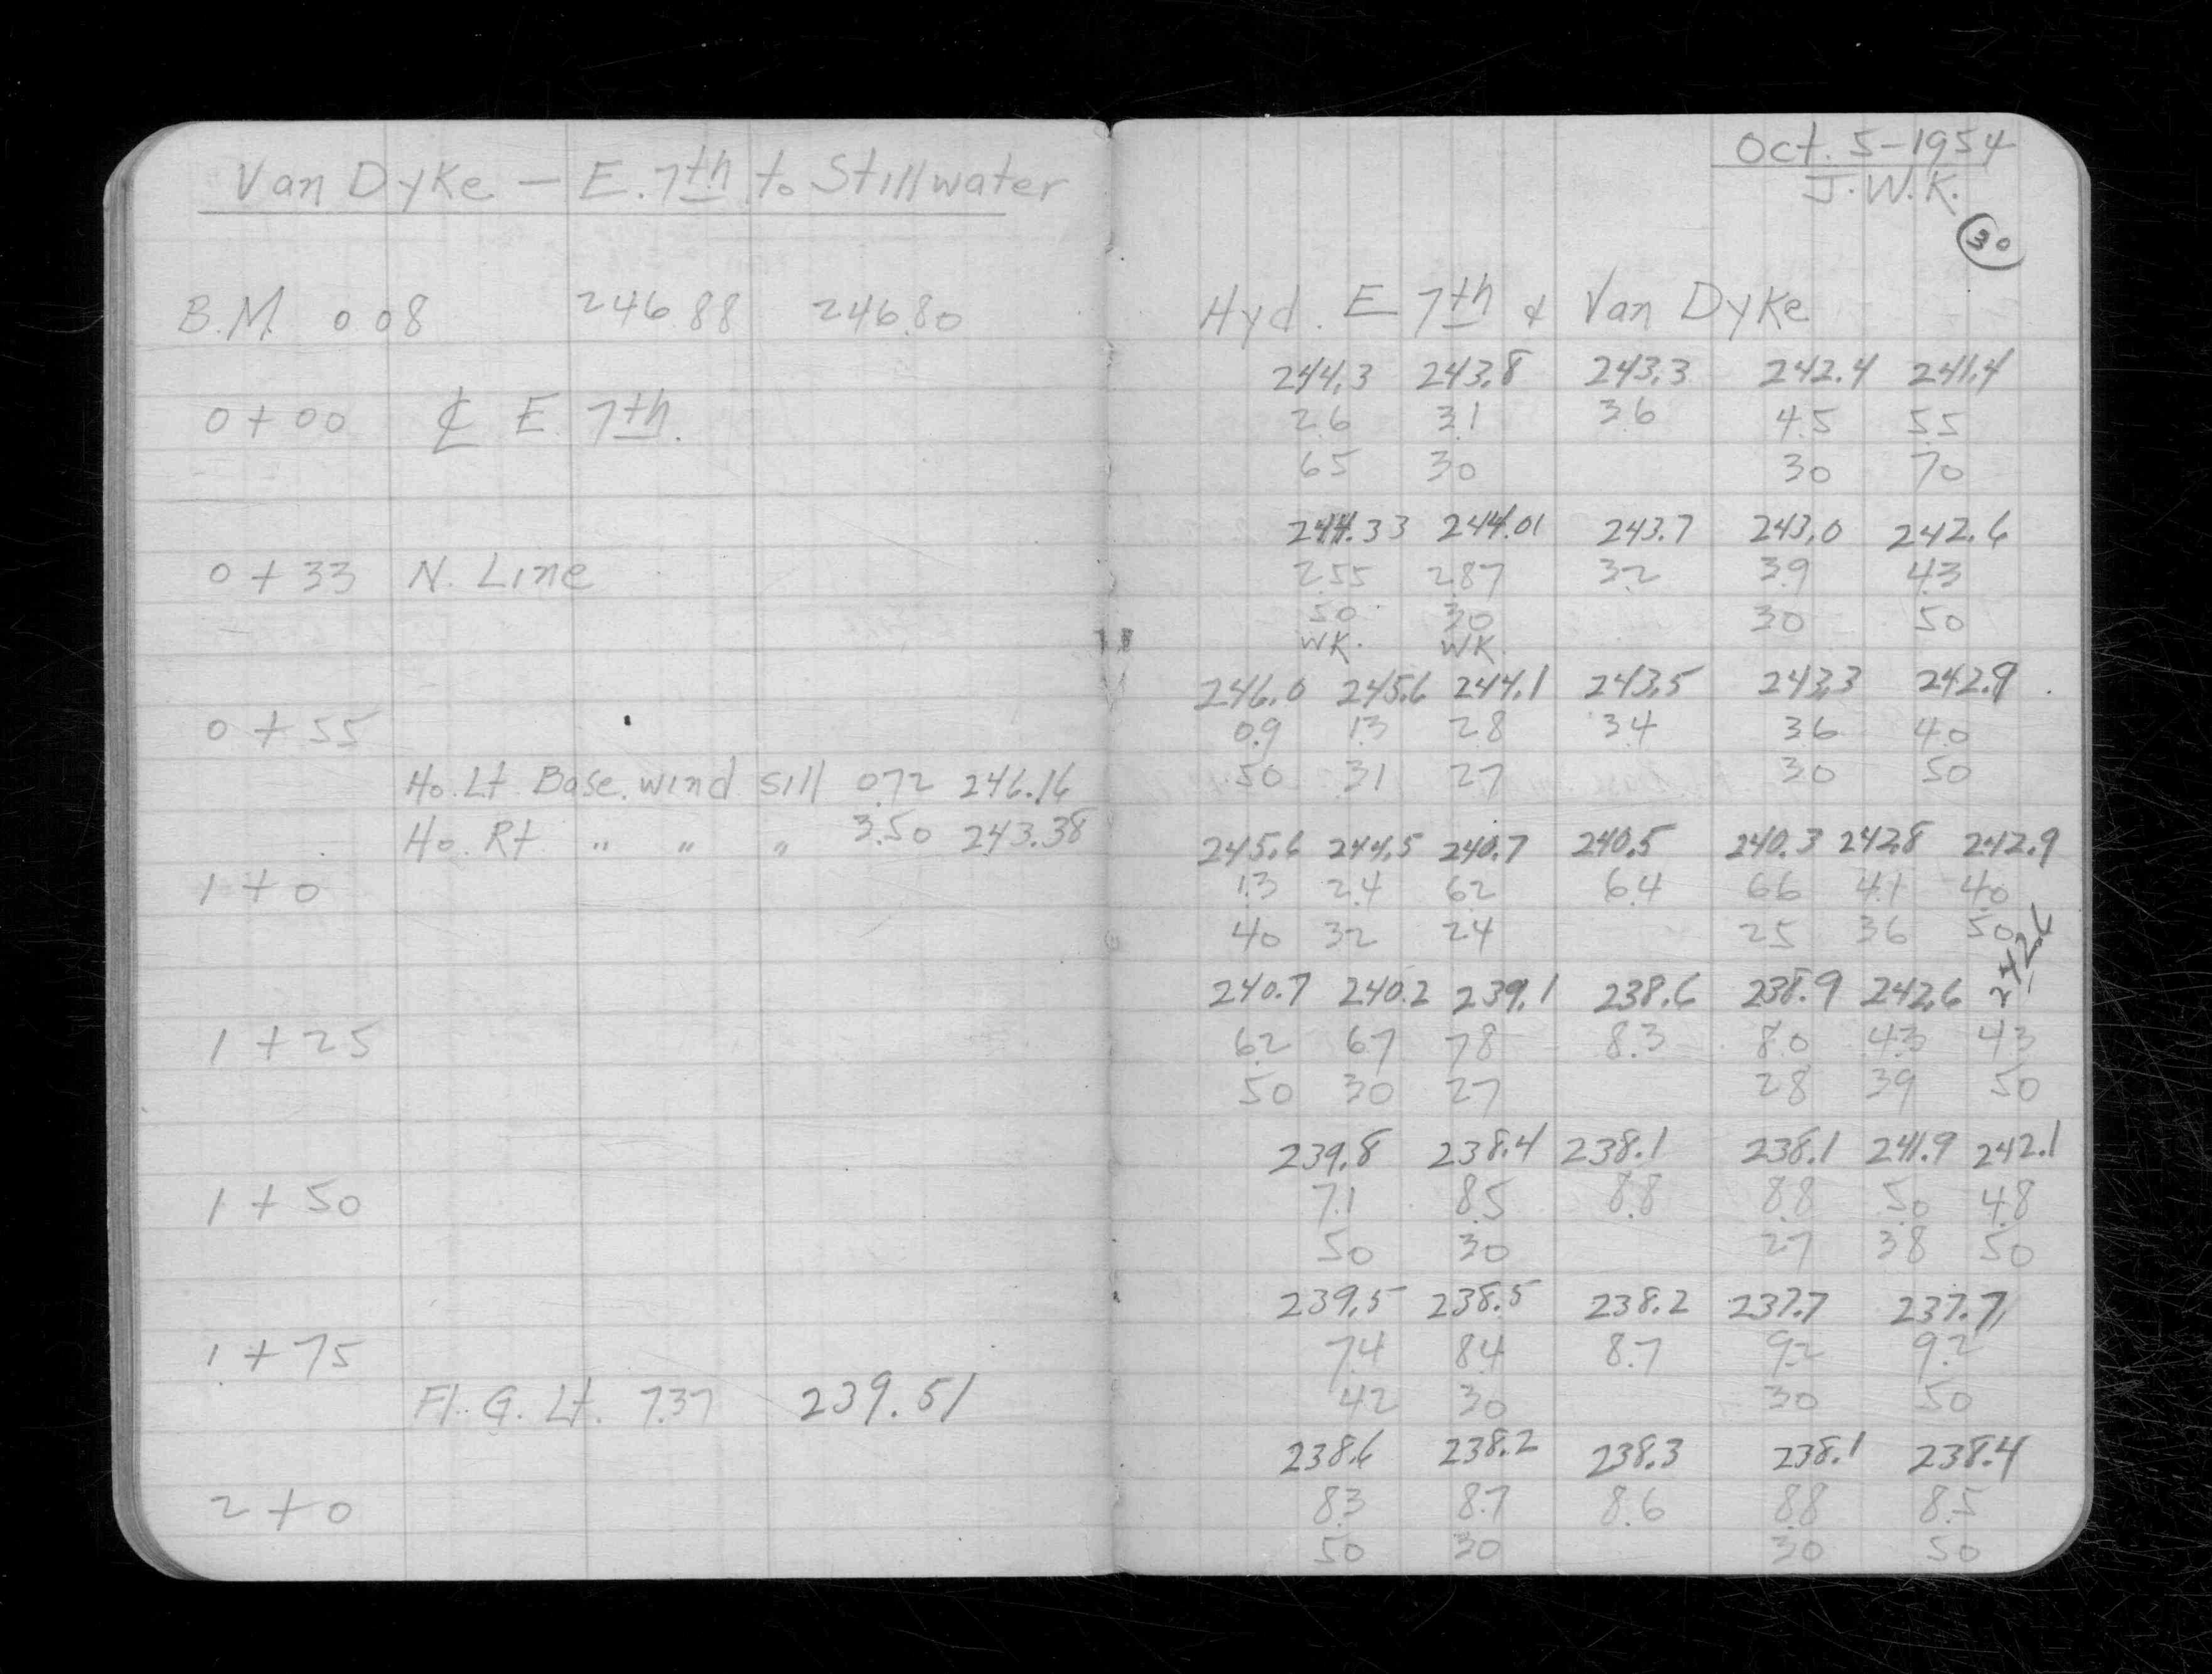 Van Dyke — E. 7th to Stillwater
B.M. 0 08 246 88 246.80
0 + 00 ℄ E. 7th.
0 + 33 N. Line
0 + 55
Ho. Lt. Base. wind sill 0.72 246.16
Ho. Rt. " " " 3.50 243.38
1 + 0
1 + 25
1 + 50
1 + 75
Fl. G. Lt. 7.37 239.51
2 + 0
Oct. 5-1954
J.W.K.
30
Hyd. E 7th & Van Dyke
244.3 243.8 243.3 242.4 241.4
2.6 3.1 3.6 4.5 5.5
65 30 30 70
244.33 244.01 243.7 243.0 242.6
2.55 2.87 3.2 3.9 4.3
50 30 30 50
WK. WK.
246.0 245.6 244.1 243.5 243.3 242.9
0.9 1.3 2.8 3.4 3.6 4.0
50 31 27 30 50
245.6 244.5 240.7 240.5 240.3 242.8 242.9
1.3 2.4 6.2 6.4 6.6 4.1 4.0
40 32 24 25 36 50
240.7 240.2 239.1 238.6 238.9 242.6 242.6
6.2 6.7 7.8 8.3 8.0 4.3 4.3
50 30 27 28 39 50
239.8 238.4 238.1 238.1 241.9 242.1
7.1 8.5 8.8 8.8 5.0 4.8
50 30 27 38 50
239.5 238.5 238.2 237.7 237.7
7.4 8.4 8.7 9.2 9.2
42 30 30 50
238.6 238.2 238.3 238.1 238.4
8.3 8.7 8.6 8.8 8.5
50 30 30 50